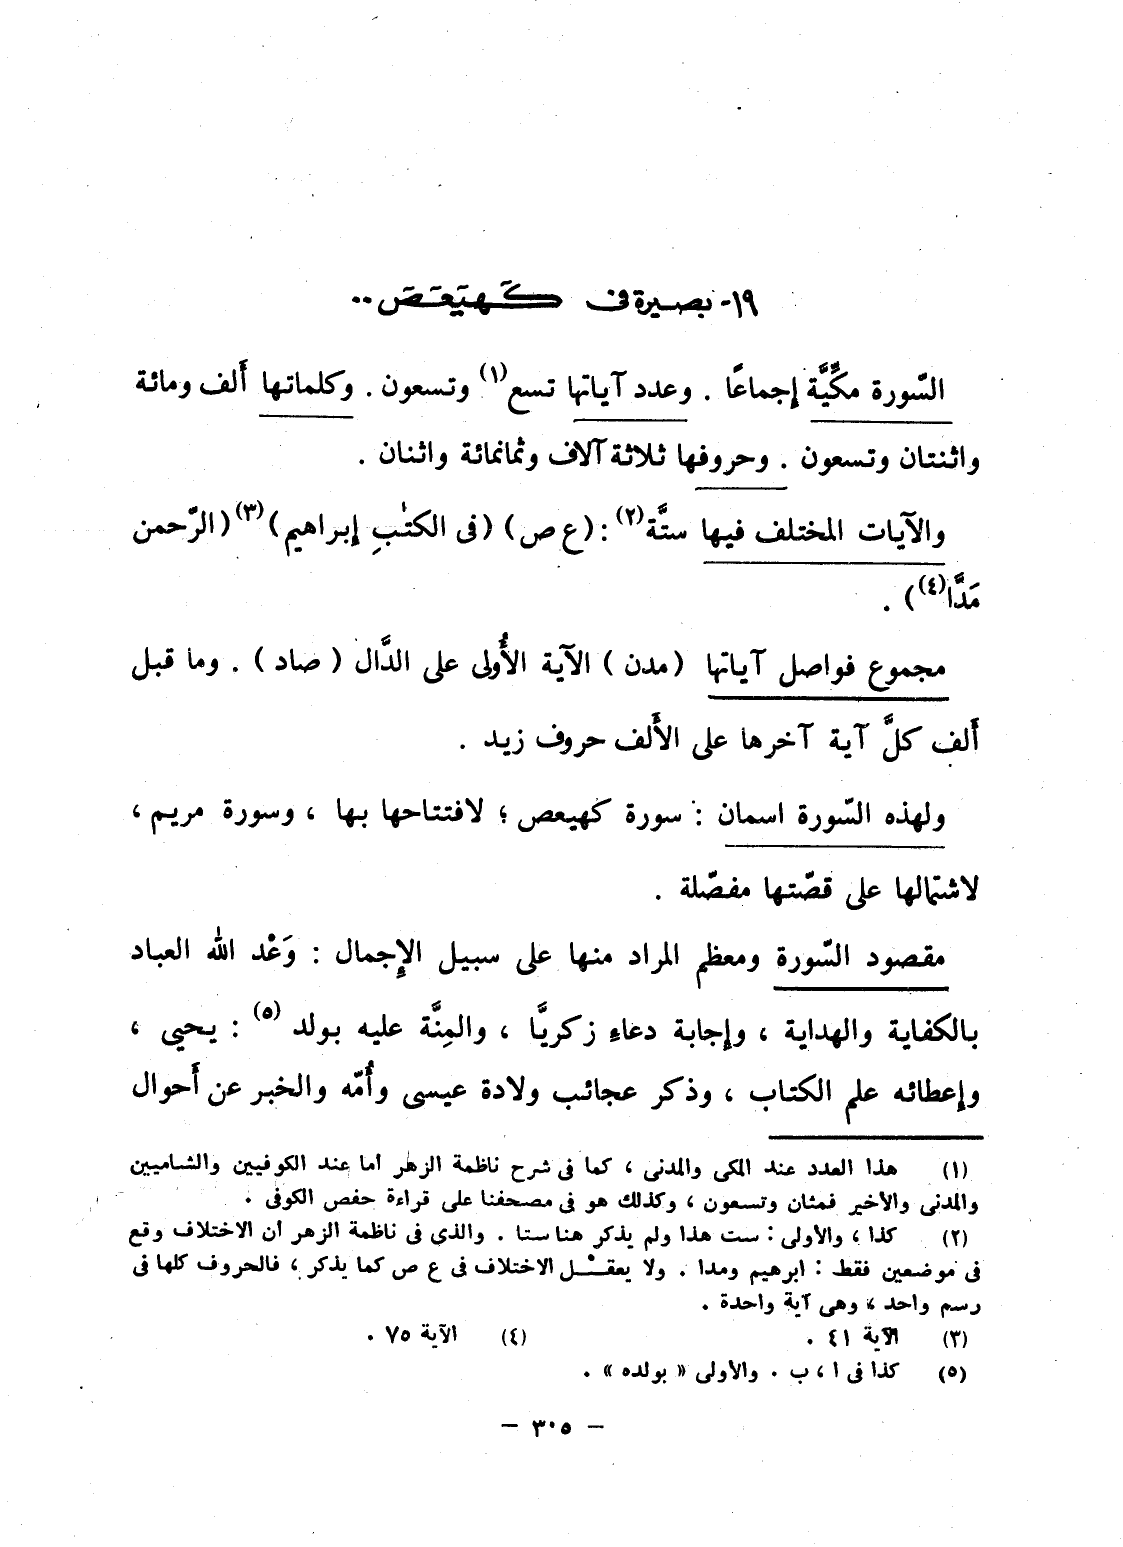 ١٩- بصيرة فى كهيعص ..
السّورة مكِّيَّة إجماعًا . وعدد آياتها تسع(١) وتسعون . وكلماتها ألف ومائة
واثنتان وتسعون . وحروفها ثلاثة آلاف وثمانمائة واثنان .
والآيات المختلف فيها ستَّة(٢) : (ع ص) (فى الكتٰبِ إبراهيم)(٣) (الرّحمن
مَدًّا(٤)) .
مجموع فواصل آياتها (مدن) الآية الأُولى على الدَّال (صاد) . وما قبل
ألف كلّ آية آخرها على الألف حروف زيد .
ولهذه السّورة اسمان : سورة كهيعص ؛ لافتتاحها بها ، وسورة مريم ،
لاشتمالها على قصّتها مفصّلة .
مقصود السّورة ومعظم المراد منها على سبيل الإِجمال : وَعْد الله العباد
بالكفاية والهداية ، وإجابة دعاءِ زكريَّا ، والمِنَّة عليه بولد(٥) : يحيى ،
وإعطائه علم الكتاب ، وذكر عجائب ولادة عيسى وأُمّه والخبر عن أحوال
(١) هذا العدد عند المكى والمدنى ، كما فى شرح ناظمة الزهر أما عند الكوفيين والشاميين
والمدنى والأخير فمثان وتسعون ، وكذلك هو فى مصحفنا على قراءة حفص الكوفى .
(٢) كذا ، والأولى : ست هذا ولم يذكر هنا ستا . والذى فى ناظمة الزهر أن الاختلاف وقع
فى موضعين فقط : ابرهيم ومدا . ولا يعقل الاختلاف فى ع ص كما يذكر ، فالحروف كلها فى
رسم واحد ، وهى آية واحدة .
(٣) الآية ٤١ . (٤) الآية ٧٥ .
(٥) كذا فى ا ، ب . والأولى « بولده » .
– ٣٠٥ –